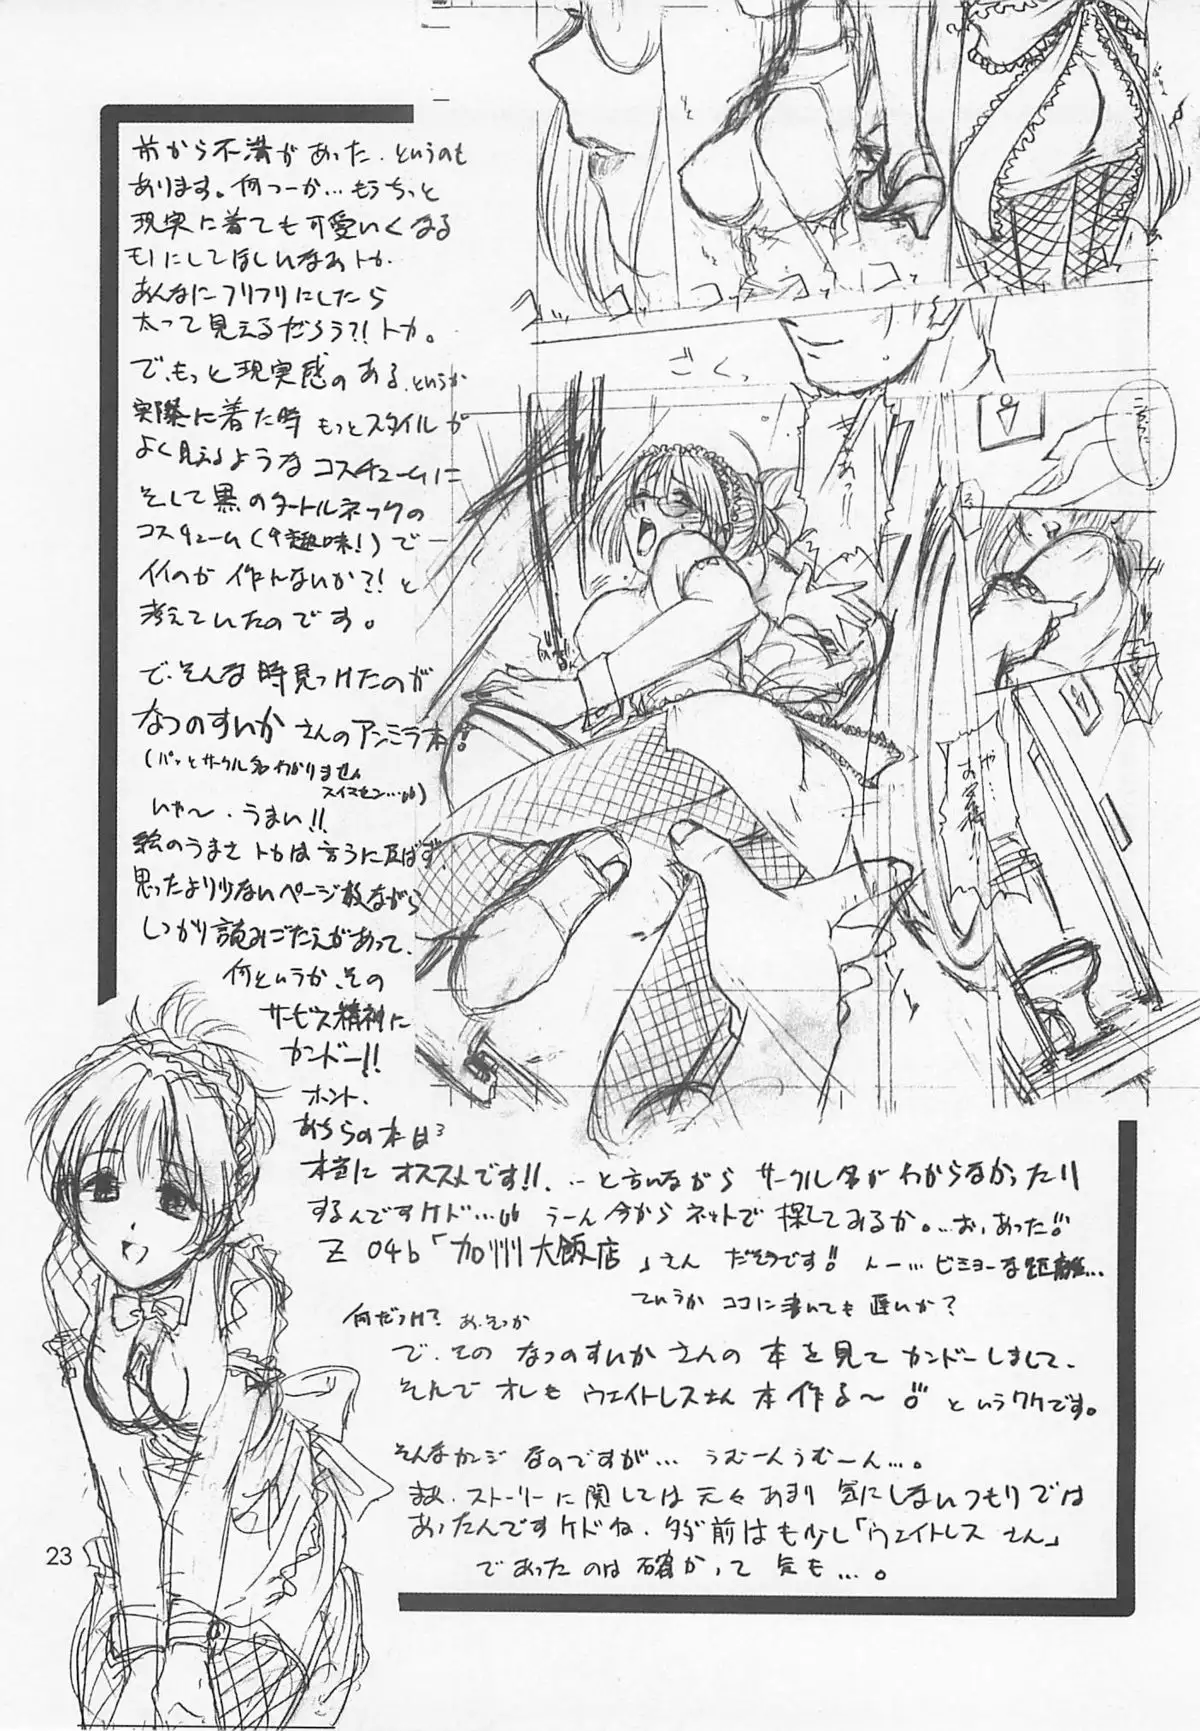 前から不満があった、というのも
あります。何つーか…もうちっと
現実に着ても可愛いくなる
モノにしてほしいなぁトカ
あんなにフリフリにしたら
太って見えるだろう?!トカ。
で、もっと現実感のある、というか
実際に着た時もっとスタイルが
よく見えるようなコスチュームに
そして黒のタートルネックの
コスチューム(趣味!)で
イイのが作んないか?!と
考えていたのです。
で、そんな時見つけたのが
なつのすいかさんのアンミラ本!!
(パッとサークル名わかりません
スイマセン…)
いや〜、うまい!!
絵のうまさトカは言うに及ばず、
思ったより少ないページ数ながら
しっかり読みごたえがあって、
何というか、その
サービス精神に
カンドー!!
ホント、
あちらの本は
本当にオススメです!!…と言いながらサークル名がわからなかったり
するんですケド…うーん今からネットで探してみるか。…お、あった!!
Z 04b「加州大飯店」さん だそうです!! んー…ビミョーな距離…
ていうかココに書いても遅いか?
何だっけ? あ、そっか
で、そのなつのすいかさんの本を見てカンドーしまして、
そんでオレもウェイトレスさん本作る〜!! というワケです。
そんなカンジなのですが…うむーんうむーん…。
まあ、ストーリーに関しては元々あまり気にしないつもりでは
あったんですケドね、多分前はも少し「ウェイトレスさん」
であったのは確かって気も…。
ごくっ
コッ コッ コッ コッ
きゃあっ
や…
お客様…
23